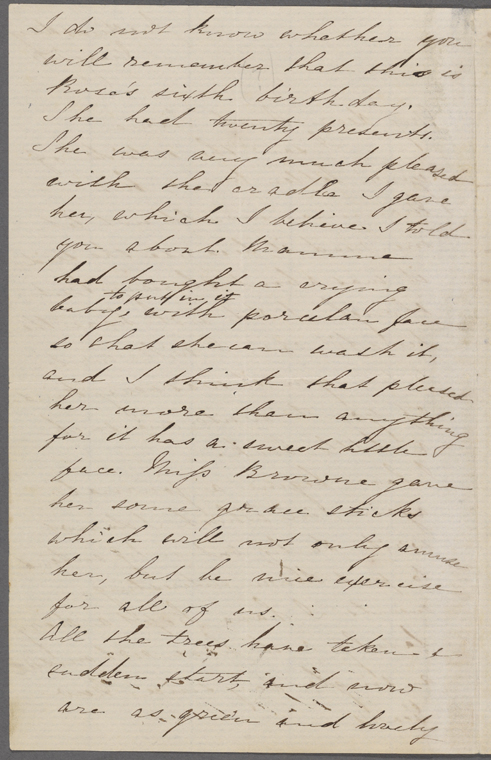 I do not know whether you
will remember that this is
Rosa's sixth birthday.
She had twenty presents.
She was very much pleased
with the cradle I gave
her, which I believe I told
you about. Mamma
had bought a crying
to put in it
baby, with porcelan face
so that she can wash it,
and I think that pleased
her more than anything
for it has a sweet little
face. Miss Browne gave
her some grace sticks
which will not only amuse
her, but be nice exercise
for all of us.
All the trees have taken a
sudden start, and now
are as green and lovely